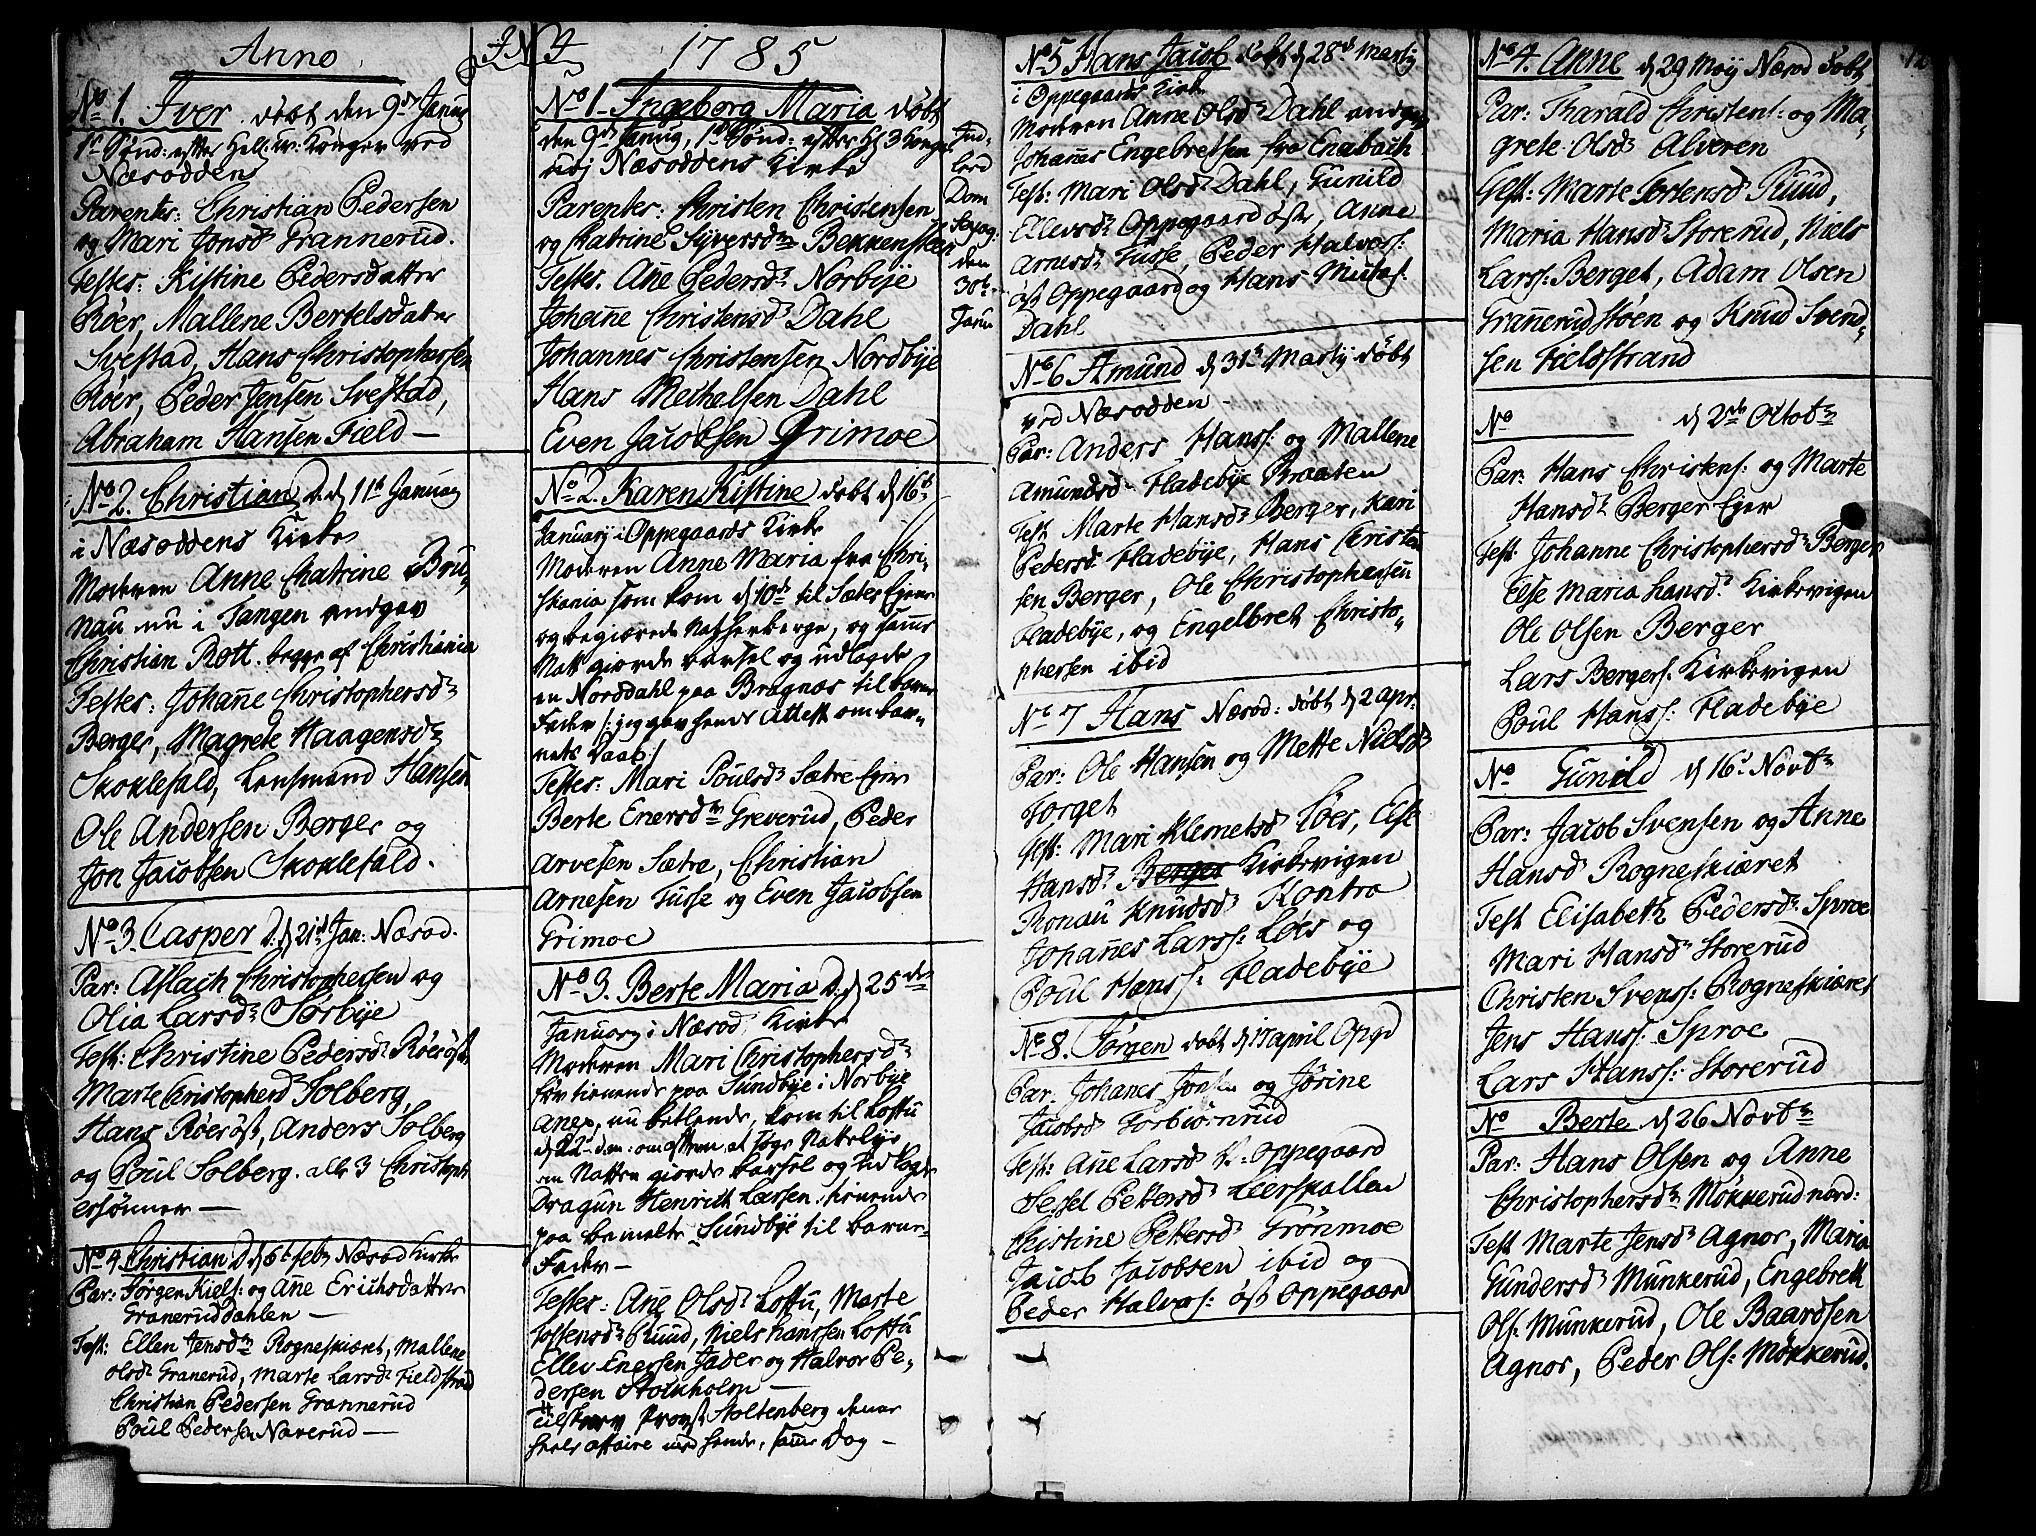 Anno
1785
No 1. Iver døbt den 9de Januarij
1te Sønd: efter Hell. tr: Konger ved
Næsodden
Parentes: Christian Pedersen
og Mari Jonsdr Grannerud.
Testes: Kistine Pedersdatter
Röer, Mallene Bertelsdatter
Svestad, Hans Christophersen
Röer, Peder Jensen Svestad,
Abraham Hansen Field —
No 2. Christian D. d 11te Januarij
i Næsoddens Kirke
Moderen Anne Chatrine Bru-
nau nu i Tangen angav
Christian Rott. begge af Christiania
Testes: Johañe Christophersdr
Berger, Magrete Haagensdr
Skoklefald, Lensmand Hansen
Ole Andersen Berger og
Jon Jacobsen Skoklefald.
No 3. Casper D. d 21de Jan: Næsod.
Par: Aslach Christophersen og
Olia Larsdr Sørbÿe
Test: Christine Pedersdr Röer øst,
Marte Christopherd Solberg,
Hans Röer øst, Anders Solberg
og Poul Solberg. alle 3 Christoph
ersønner —
No 4 Christian D d 6t febr Næsod Kirke
Par: Jørgen Kiels: og Añe Erichsdatter
Granerud dahlen —
Test: Ellen Jensdr Rogneskiæret, Mallene
Olsdr Granerud, Marte Larsdr Fieldstrad
Christian Pedersen Grannerud
Poul Pedersen Naverud —
No 1. Ingeborg Maria døbt
den 9de Januarij, 1te Sønd: efter H 3 Konger
udj Næsoddens Kirke
Parentes: Christen Christensen
og Chatrine Syversdr Bekkensteen
Testes. Añe Pedersdr Norbÿe
Johañe Christensdr Dahl
Johannes Christensen Nordbÿe
Hans Michelsen Dahl
Even Jacobsen Grimoe
Dom
den
30te
Janu
No 2. Karen Kistine døbt d 16de
Januarij i Oppegaards Kirke
Moderen Anne Maria fra Chri-
stiania som kom d 10de til Sætre Ejer
og begiærede Natteherberge, og samme
Natt giorde barsel og udlagde
en Norddahl paa Bragnæs til barne
Fader /: jeg gav hende Attest om bar-
nets Daab :/
Testes: Mari Poulsdr Sætre Ejer
Berte Enersdr Greverud, Peder
Arvesen Sætre, Christian
Arnesen Tusse og Even Jacobsen
Grimoe
No 3. Berte Maria D. d 25de
Januarij i Næsod. Kirke
Moderen Mari Christophersdr
før tienende paa Sundbÿe i Norbÿe
anex, nu betlende, kom til Loftu
d 22de om aftenen at søge Natteleje
om Natten giorde barsel og udlagde
Dragun Henrich Larsen tienende
paa bemelte Sundbÿe til barne-
Fader —
Testes: Añe Olsdr Loftu, Marte
Tostensdr Ruud, Niels Hanssen Loftu
Ellev Enersen Jader og Halvor Pe-
dersen Stokholm —
tilskrev Provst Stoltenberg denne
heele affaire med hende, samme Dag —
No 5 Hans Jacob døbt d 28de Martij
i Oppegaards Kirke
Moderen Anne Olsdr Dahl angav
Johañes Engebretsen fra Enebach
Test: Mari Olsdr Dahl, Gunild
Ellevsdr Oppegaard østr, Anne
Arnesdr Tusse, Peder Halvors:
øst Oppegaard og Hans
Dahl
No 6 Amund d 31te Martij døbt
ved Næsodden —
Par: Anders Hanss: og Mallene
Amundsdr Fladebÿe Braaten
Test Marte Hansdr Berger, Kari
Pedersd Fladebÿe, Hans Christen
sen Berger, Ole Christophersen
Fladebÿe, og Engelbret Christo-
phersen ibid
No 7 Hans Næsod: døbt d 2 apr:
Par: Ole Hansen og Mette Nielsdr
Torget
Test: Mari Klemetsd Löes, Else
Hansdr Berger Kirkevigen
Ronau Knudsdr Kontra
Johañes Larss: Löes og
Poul Hanss: Fladebÿe
No 8. Jørgen døbt d 17 april Opgd
Par. Johanes Jonsen og Jørine
Jacobsd Torbiørnrud
Test: Añe Larsd V: Oppegaard
Sesel Pettersdr Leerskallen
Christine Pettersdr Grønmoe
Jacob Jacobsen ibid og
Peder Halvors: øst Oppegaard
No 4. Anne d 29 Maÿ Næsod Døbt
Par: Tharald Christens: og Ma-
grete Olsdr Alveren
Test: Marte Tortensdr Ruud,
Maria Hansdr Storerud, Niels
Larss: Berget, Adam Olsen
Grañerudstöen og Knud Svend-
sen Fieldstrand
No d 2de Octobr
Par: Hans Christens: og Marte
Hansdr Berger Ejer
Test: Johanne Christophersdr Berger
Else Maria Hansdr Kirkevigen
Ole Olsen Berger
Lars Bergers: Kirkevigen
Poul Hanss: Fladebÿe
No Gunild d 16de Novbr
Par: Jacob Svensen og Anne
Hansdr Rogneskiæret
Test Elisabeth Pedersdr Sproe
Mari Hansdr Storerud
Christen Svenss: Rogneskiæret
Jens Hanss. Sproe
Lars Hanss: Storerud
No Berte d 26 Novbr
Par: Hans Olsen og Anne
Christophersdr Møkkerud nord:
Test Marte Jensdr Agnor, Maria
Gundersdr Munkerud, Engebrett
Ols: Munkerud, Ole Baardsen
Agnor, Peder Ols: Møkkerud.